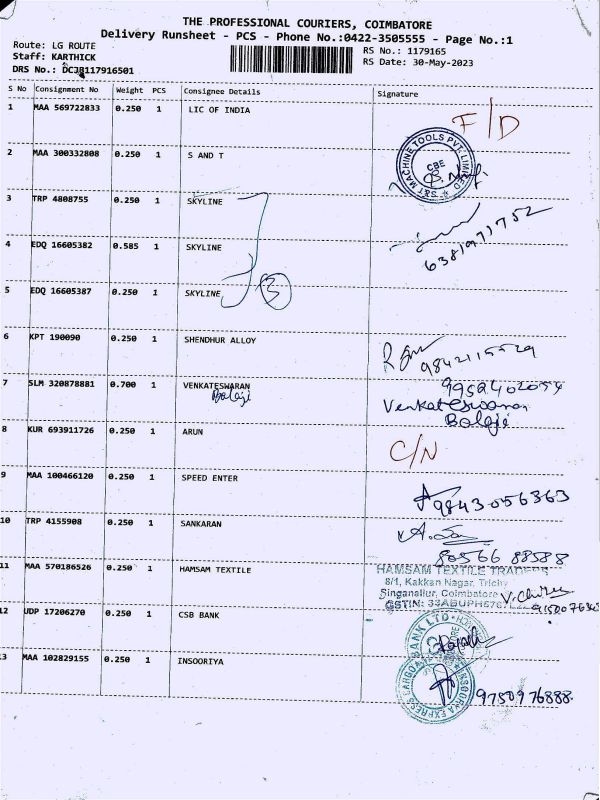 THE PROFESSIONAL COURIERS, COIMBATORE
Delivery Runsheet - PCS - Phone No.:0422-3505555 - Page No.:1
Route: LG ROUTE
Staff: KARTHICK
DRS No.: DCJB117916501
RS No.: 1179165
RS Date: 30-May-2023
S No Consignment No Weight PCS Consignee Details Signature
1 MAA 569722833 0.250 1 LIC OF INDIA F/D
2 MAA 300332808 0.250 1 S AND T
S&T MACHINE TOOLS PVT. LIMITED CBE
3 TRP 4808755 0.250 1 SKYLINE
4 EDQ 16605382 0.585 1 SKYLINE 6381971752
5 EDQ 16605387 0.250 1 SKYLINE 3
6 KPT 190090 0.250 1 SHENDHUR ALLOY 9842115529
7 SLM 320878881 0.700 1 VENKATESWARAN
Balaji
Venkateswaran
Balaji
8 KUR 693911726 0.250 1 ARUN C/N
9 MAA 100466120 0.250 1 SPEED ENTER 9843056363
10 TRP 4155908 0.250 1 SANKARAN
80566 88588
11 MAA 570186526 0.250 1 HAMSAM TEXTILE
HAMSAM TEXTILE TRADERS
8/1, Kakkan Nagar, Trichy
Singanallur, Coimbatore
GSTIN:
12 UDP 17206270 0.250 1 CSB BANK
BANK LTD
13 MAA 102829155 0.250 1 INSOORIYA
9750976888